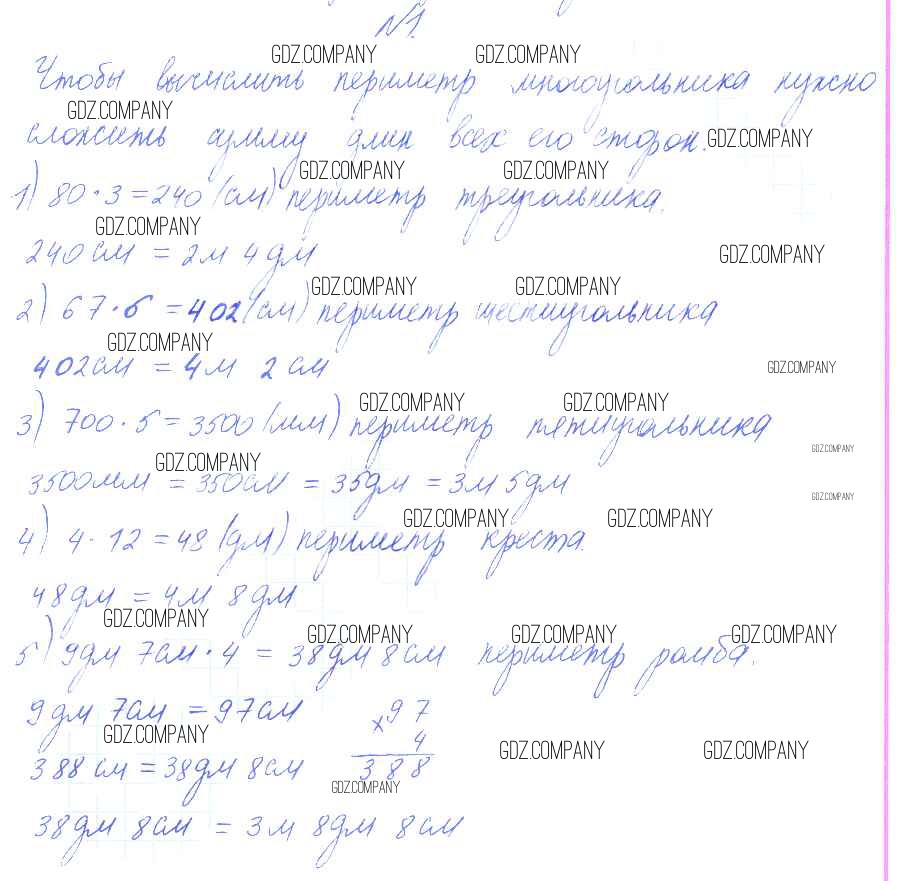 №1.
GDZ.COMPANY GDZ.COMPANY
Чтобы вычислить периметр многоугольника нужно
GDZ.COMPANY
сложить сумму длин всех его сторон.
GDZ.COMPANY
GDZ.COMPANY GDZ.COMPANY
1) 80 · 3 = 240 (см) периметр треугольника.
GDZ.COMPANY
240 см = 2 м 4 дм
GDZ.COMPANY
GDZ.COMPANY GDZ.COMPANY
2) 67 · 6 = 402 (см) периметр шестиугольника
GDZ.COMPANY
402 см = 4 м 2 см
GDZ.COMPANY
GDZ.COMPANY GDZ.COMPANY
3) 700 · 5 = 3500 (мм) периметр пятиугольника
GDZ.COMPANY
GDZ.COMPANY
3500 мм = 350 см = 35 дм = 3 м 5 дм
GDZ.COMPANY
GDZ.COMPANY GDZ.COMPANY
4) 4 · 12 = 48 (дм) периметр креста.
48 дм = 4 м 8 дм
GDZ.COMPANY
GDZ.COMPANY GDZ.COMPANY GDZ.COMPANY
5) 9 дм 7 см · 4 = 38 дм 8 см периметр ромба.
9 дм 7 см = 97 см
× 97
4
GDZ.COMPANY
GDZ.COMPANY GDZ.COMPANY
388 см = 38 дм 8 см
388
GDZ.COMPANY
38 дм 8 см = 3 м 8 дм 8 см